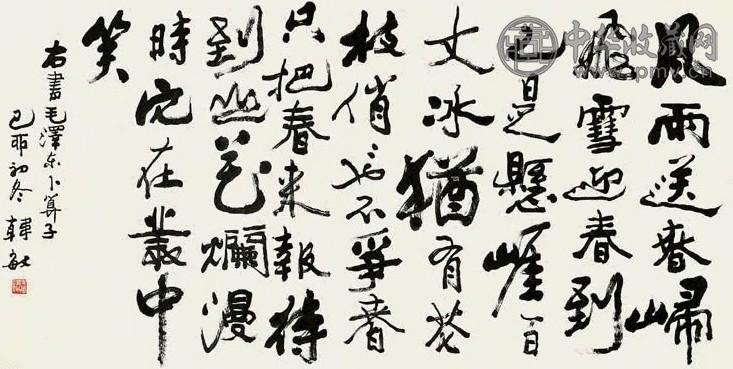 風雨送春歸
飛雪迎春到
已是懸崖百
丈冰猶有花
枝俏也不爭春
只把春來報待
到山花爛漫
時它在叢中
笑
右書毛澤东卜算子
己卯初冬 韓敏
中华收藏网